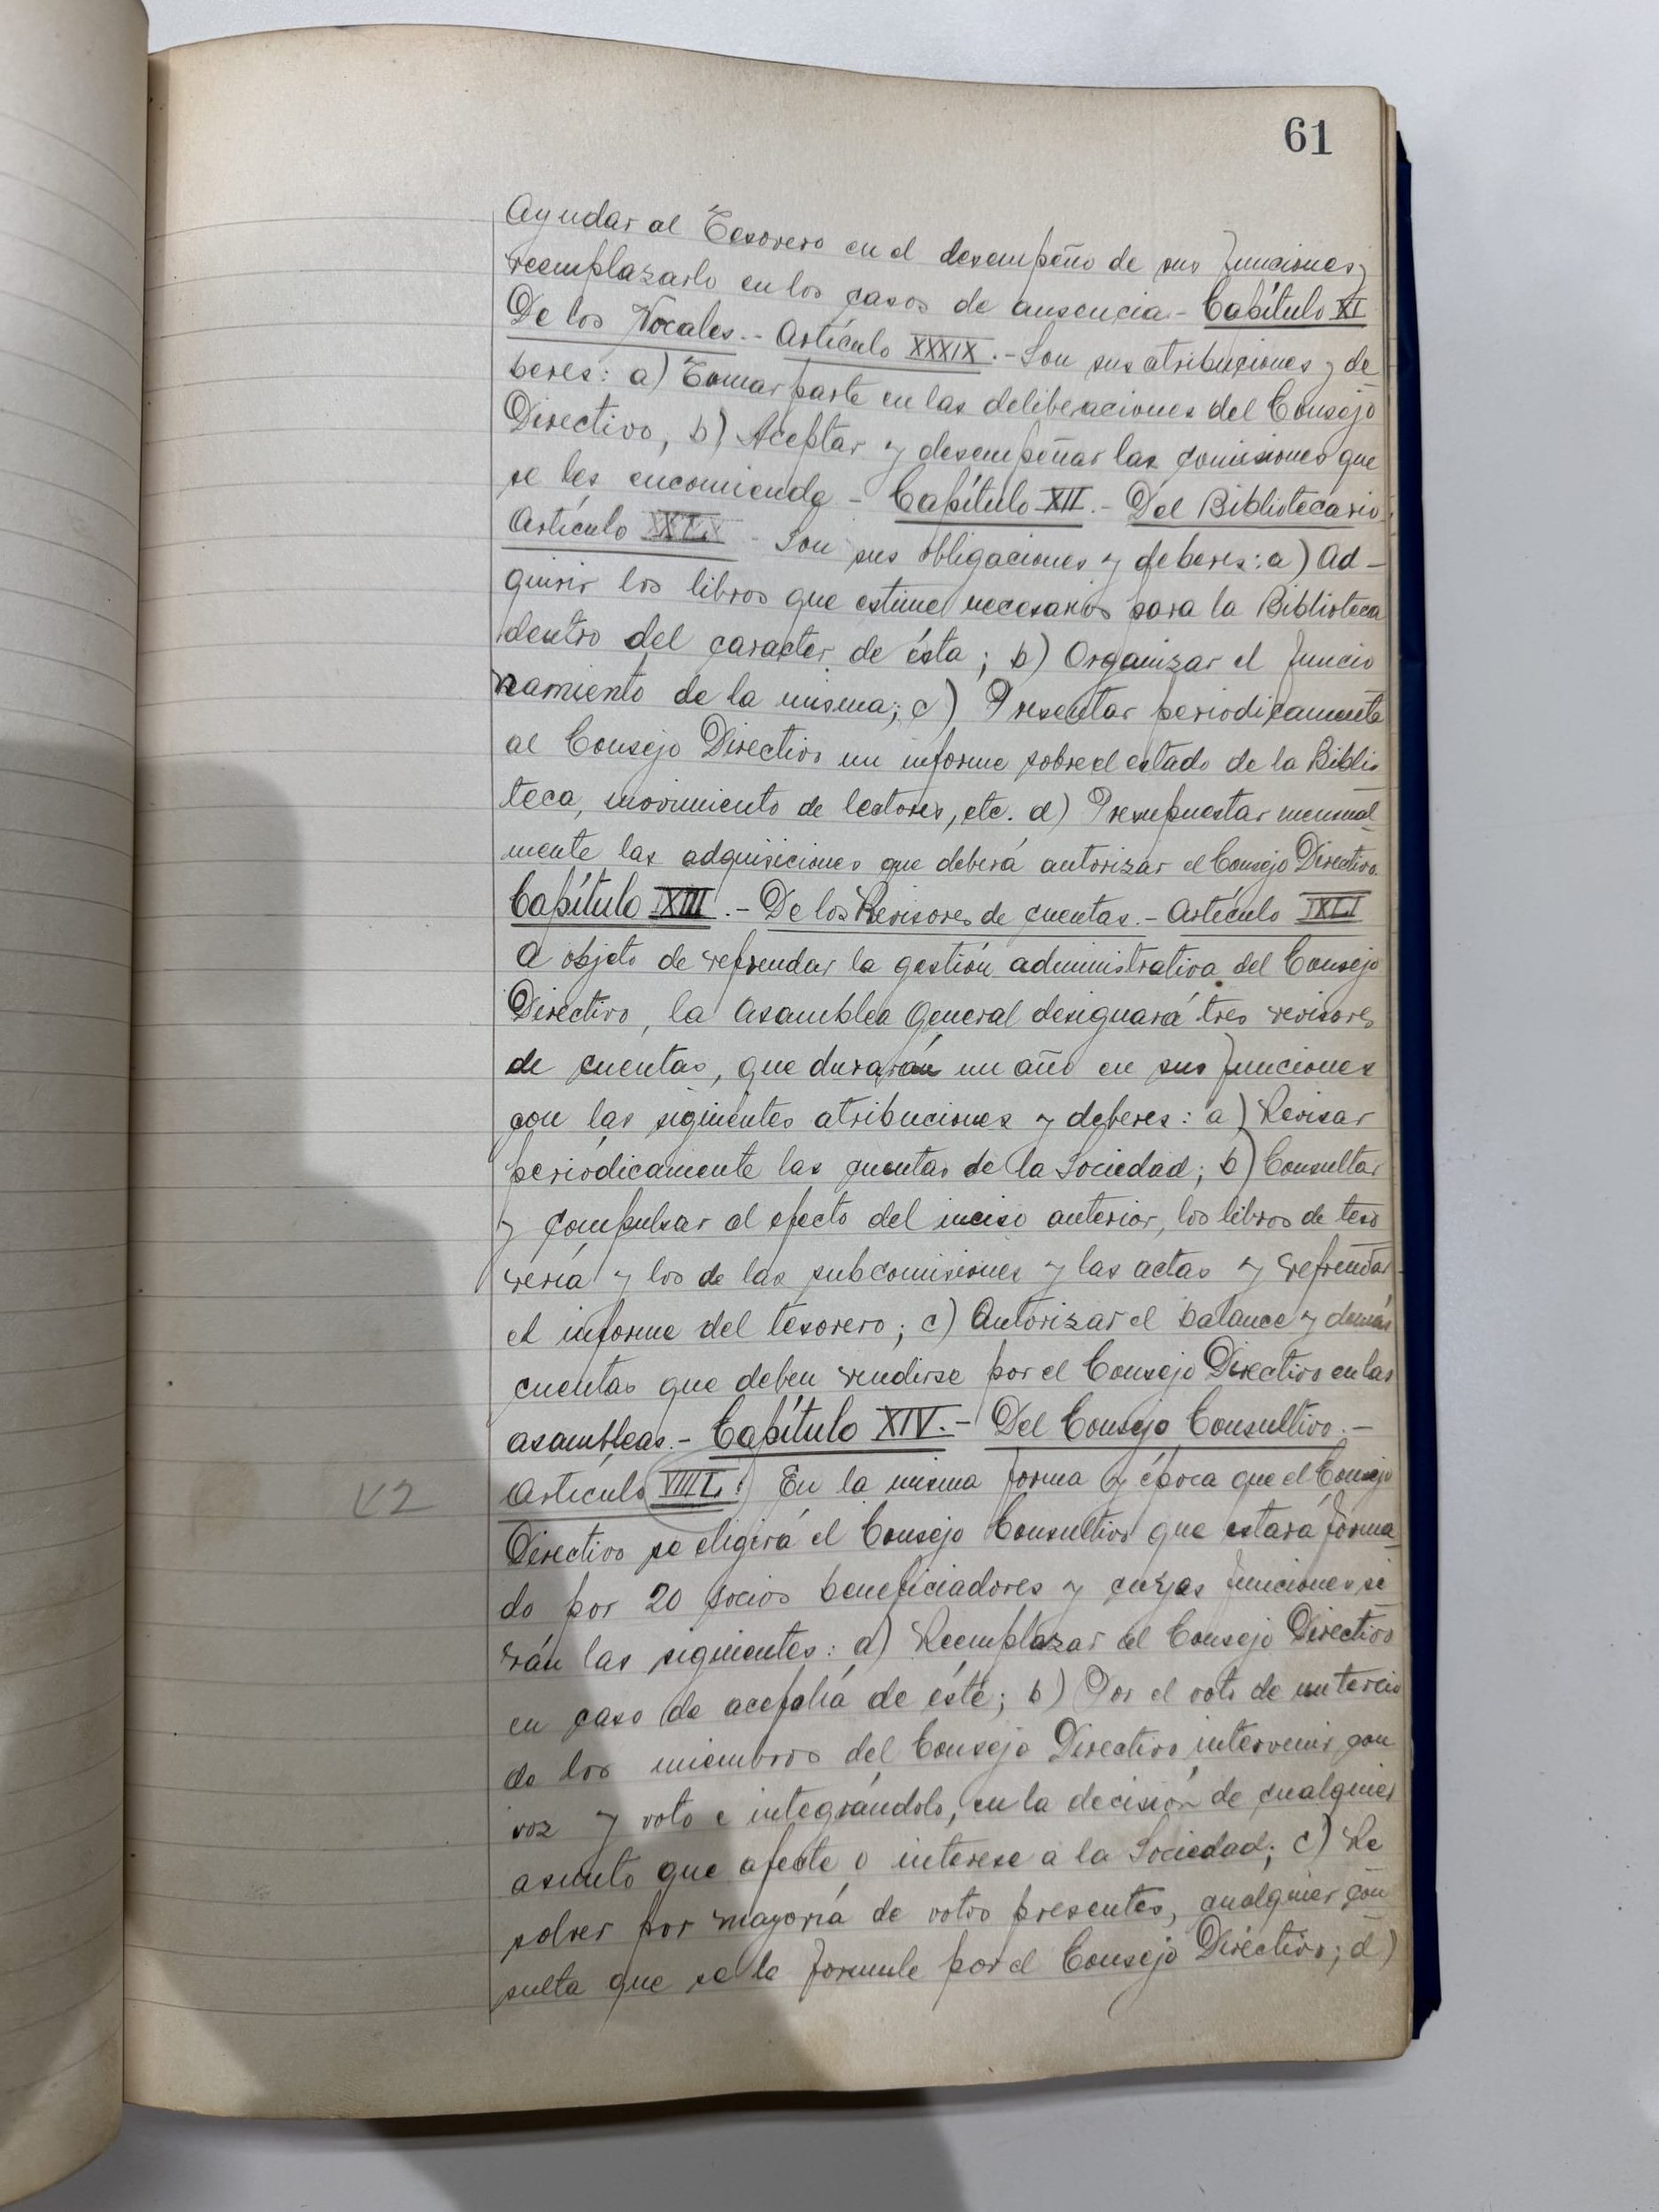 61
Ayudar al Tesorero en el desempeño de sus funciones y
reemplazarlo en los casos de ausencia.- Capítulo XI
De los Vocales.- Artículo XXXIX.- Son sus atribuciones y de
beres: a) Tomar parte en las deliberaciones del Consejo
Directivo, b) Aceptar y desempeñar las comisiones que
se les encomiende - Capítulo XII.- Del Bibliotecario.
Artículo - Son sus obligaciones y deberes: a) Ad-
quirir los libros que estime necesarios para la Biblioteca
dentro del caracter de ésta; b) Organizar el funcio
namiento de la misma; c) Presentar periodicamente
al Consejo Directivo un informe sobre el estado de la Biblio
teca, movimiento de lectores, etc. d) Presupuestar mensual-
mente las adquisiciones que deberá autorizar el Consejo Directivo.
Capítulo XIII.- De los Revisores de cuentas.- Artículo IXLI
A objeto de refrendar la gestión administrativa del Consejo
Directivo, la Asamblea General designará tres revisores
de cuentas, que durarán un año en sus funciones
con las siguientes atribuciones y deberes: a) Revisar
periódicamente las cuentas de la Sociedad; b) Consultar
y compulsar al efecto del inciso anterior, los libros de teso
rería y los de las subcomisiones y las actas y refrendar
el informe del tesorero; c) Autorizar el balance y demás
cuentas que deben rendirse por el Consejo Directivo en las
asambleas.- Capítulo XIV.- Del Consejo Consultivo.-
Artículo VIIIL: En la misma forma y época que el Consejo
Directivo se eligirá el Consejo Consultivo que estará forma-
do por 20 socios beneficiadores y cuyas funciones se
rán las siguientes: a) Reemplazar al Consejo Directivo
en caso de acefalía de éste; b) Por el voto de un tercio
de los miembros del Consejo Directivo intervenir, con
voz y voto e integrándolo, en la decisión de cualquier
asunto que afecte o interese a la Sociedad; c) Re
solver por mayoría de votos presentes, cualquier con
sulta que se le formule por el Consejo Directivo; d)